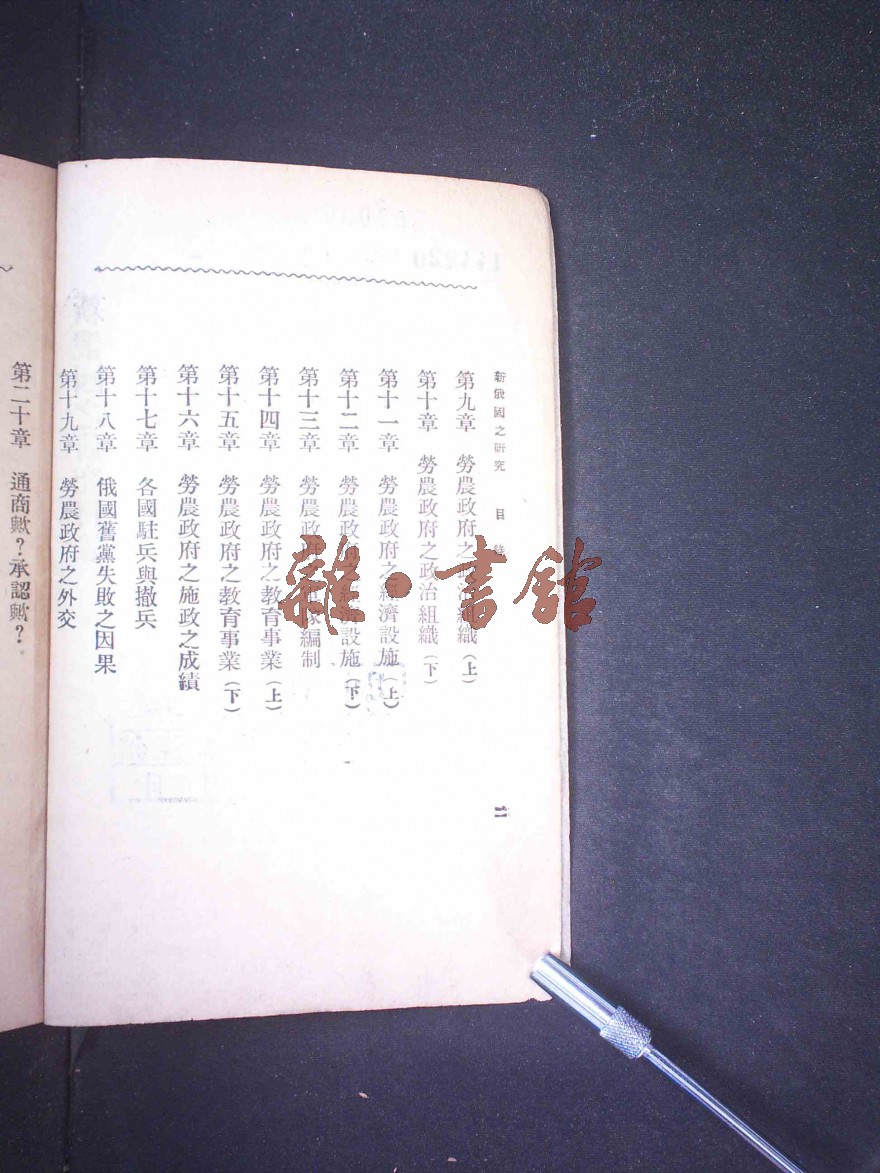 新俄國之研究 目
第九章 勞農政府之政治組織(上)
第十章 勞農政府之政治組織(下)
第十一章 勞農政府之經濟設施(上)
第十二章 勞農政府之經濟設施(下)
第十三章 勞農政府 編制
第十四章 勞農政府之教育事業(上)
第十五章 勞農政府之教育事業(下)
第十六章 勞農政府之施政之成績
第十七章 各國駐兵與撤兵
第十八章 俄國舊黨失敗之因果
第十九章 勞農政府之外交
二
第二十章 通商歟?承認歟?
雜·書館